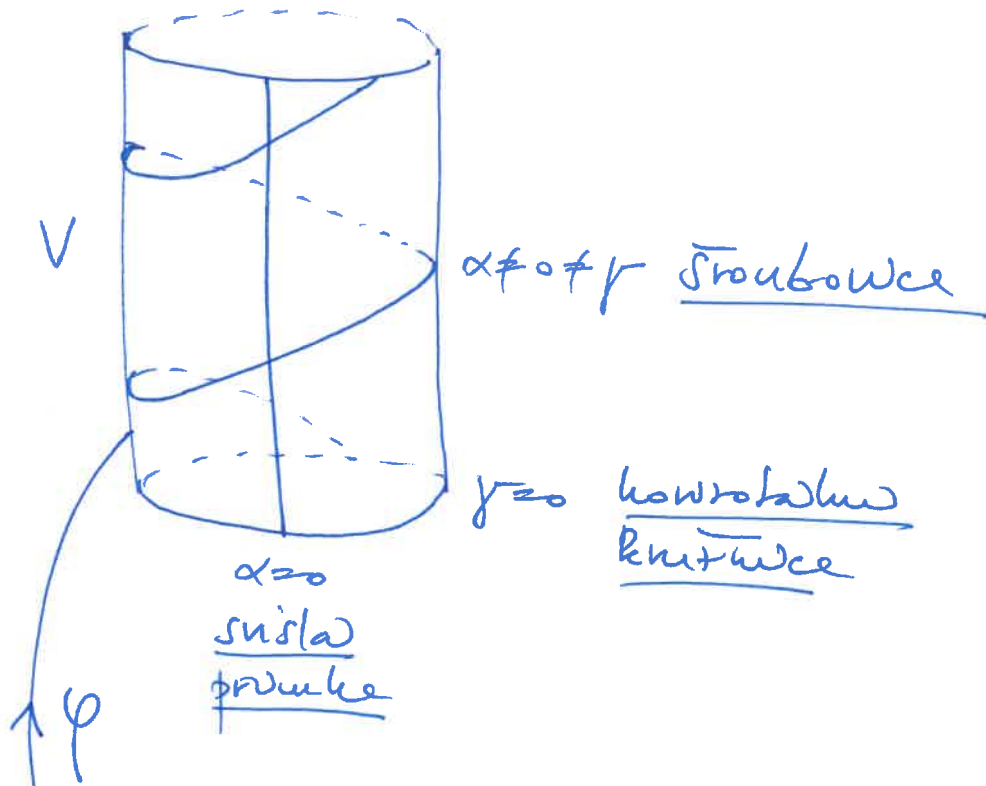 V
α≠0≠γ šroubovice
γ=0 vodorovná
kružnice
α=0
svislá
přímka
φ